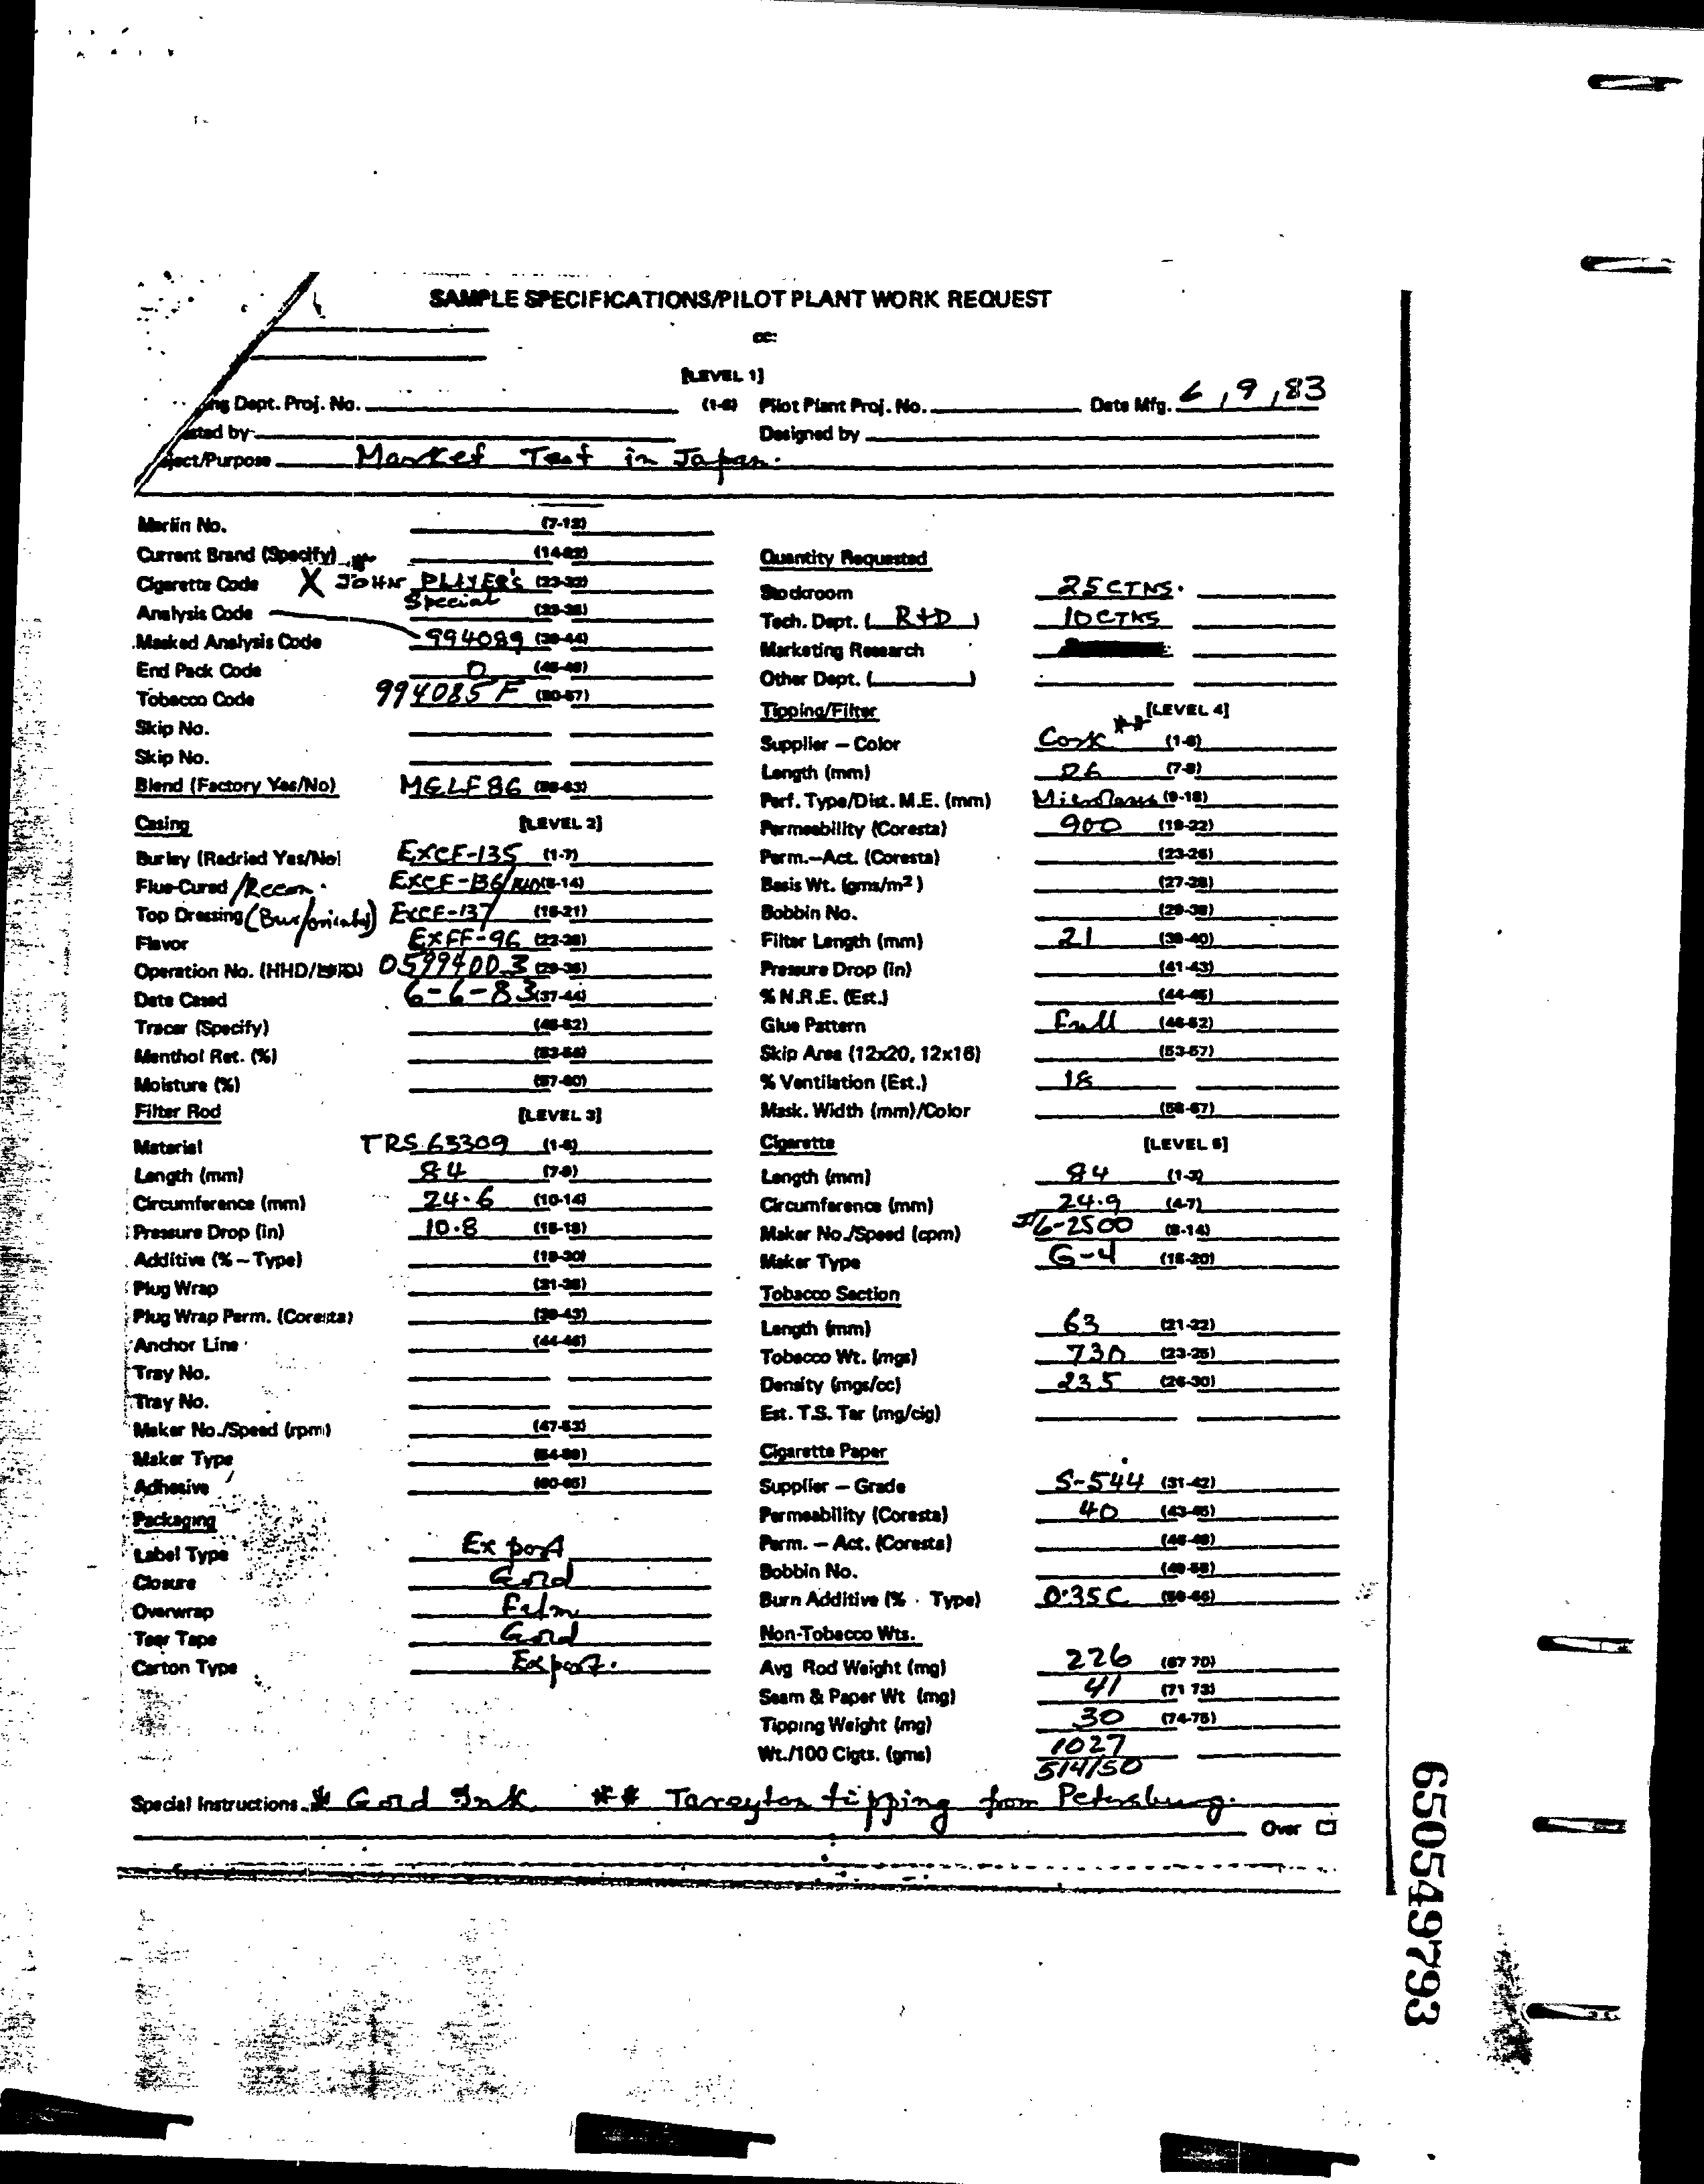 SAMPLE SPECIFICATIONS/PILOT PLANT WORK REQUEST
cc:
[LEVEL 1]
Dept. Proj. No. (1-6) Pilot Plant Proj. No. Date Mfg. 6,9,83
by Designed by
ject/Purpose Market Test in Japan.
Marlin No. (7-13)
Current Brand (Specify) *
Cigarette Code X JOHN PLAYER'S (23-32)
Special
Analysis Code
Masked Analysis Code 994089 (39-44)
End Pack Code 0
Tobacco Code 994085F (50-57)
Skip No.
Skip No.
Blend (Factory Yes/No) MGLF86
Casing [LEVEL 2]
Burley (Redried Yes/No) EXCF-135 (1-7)
Flue-Cured/Recon. EXCF-136
Top Dressing EXCF-137 (15-21)
Flavor EXFF-96
Operation No. 05994003
Date Cased 6-6-83 (37-44)
Tracer (Specify)
Menthol Ret. (%)
Moisture (%) (57-60)
Filter Rod [LEVEL 3]
Material TRS 63309
Length (mm) 84
Circumference (mm) 24.6 (10-14)
Pressure Drop (in) 10.8
Additive (% – Type)
Plug Wrap
Plug Wrap Perm. (Coresta)
Anchor Line
Tray No.
Tray No.
Maker No./Speed (rpm) (47-53)
Maker Type
Adhesive
Packaging
Label Type Export
Closure Gold
Overwrap Film
Tear Tape Gold
Carton Type Export.
Quantity Requested
Stockroom 25 CTNS.
Tech. Dept. (R+D) 10 CTNS
Marketing Research
Other Dept. ( )
Tipping/Filter [LEVEL 4]
Supplier – Color Cork ** (1-6)
Length (mm) 26 (7-8)
Perf. Type/Dist. M.E. (mm) (9-18)
Permeability (Coresta) 900 (19-22)
Perm.–Act. (Coresta) (23-26)
Basis Wt. (gms/m²)
Bobbin No.
Filter Length (mm) 21
Pressure Drop (in) (41-43)
% N.R.E. (Est.)
Glue Pattern Full
Skip Area (12x20, 12x16) (53-57)
% Ventilation (Est.) 18
Mask. Width (mm)/Color (58-67)
Cigarette [LEVEL 5]
Length (mm) 84 (1-3)
Circumference (mm) 24.9 (4-7)
Maker No./Speed (cpm) (8-14)
Maker Type G-4 (15-20)
Tobacco Section
Length (mm) 63 (21-22)
Tobacco Wt. (mgs) 730 (23-25)
Density (mgs/cc) 235 (26-30)
Est. T.S. Tar (mg/cig)
Cigarette Paper
Supplier – Grade S-544 (31-42)
Permeability (Coresta) 40 (43-45)
Perm. – Act. (Coresta)
Bobbin No.
Burn Additive (% · Type) 0.35C
Non-Tobacco Wts.
Avg Rod Weight (mg) 226 (67 70)
Seam & Paper Wt (mg) 41 (71 73)
Tipping Weight (mg) 30
Wt./100 Cigts. (gms) 1027
514/50
Special Instructions * Gold Ink ** Tareyton tipping from Petersburg.
Over
650549793